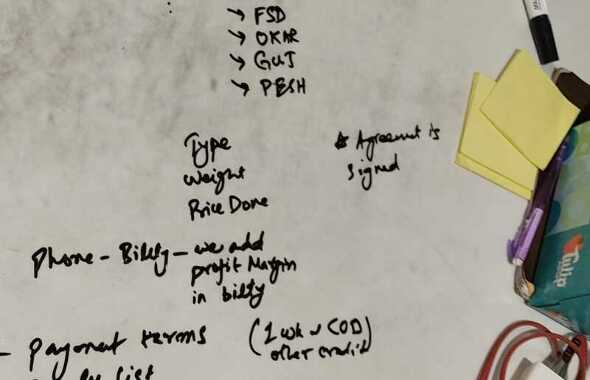 → FSD
→ OKAR
→ GUJ
→ PESH
Type
weight
Price Done
* Agreement is
signed
Phone - Bilty - we add
profit Margin
in bilty
- payment terms
(1 wk COD)
other credit
list
Tulip